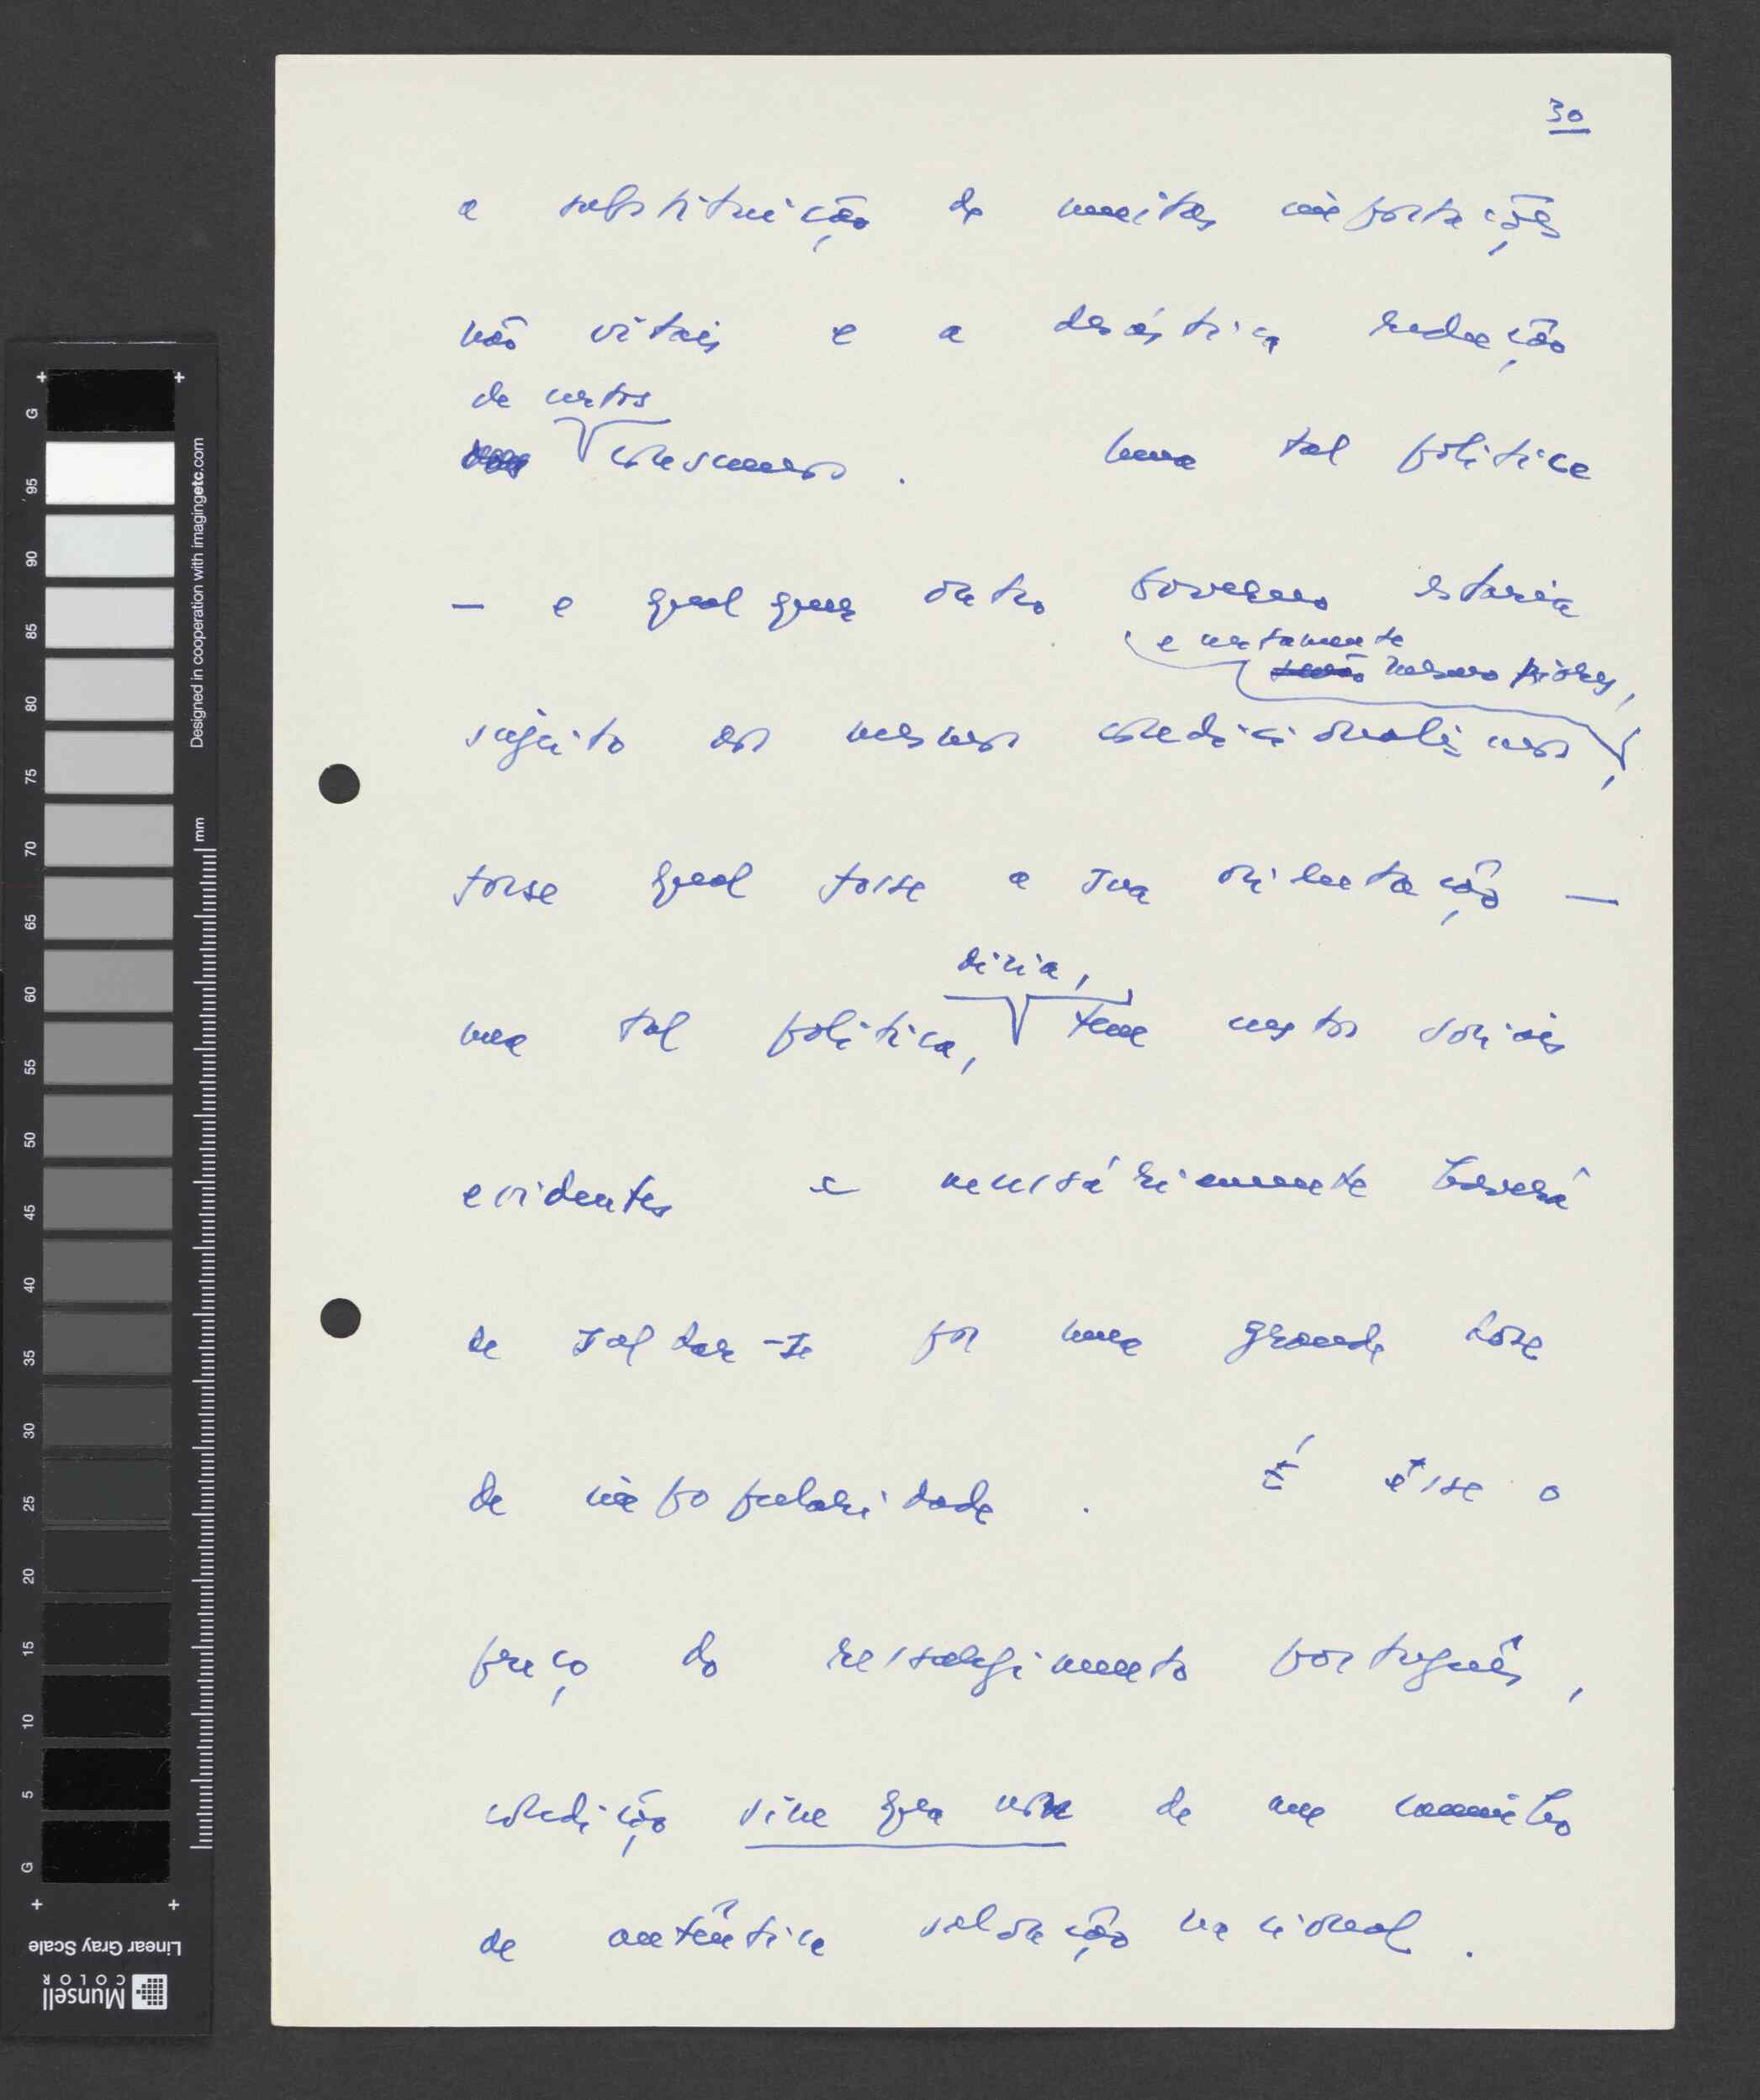 30
a substituição de muitas importações
não vitais e a drástica redução
de certos
consumos. Uma tal política
— e qualquer outro Governo estaria
e certamente
senão mesmo piores,
sujeito aos mesmos condicionalismos,
fosse qual fosse a sua orientação —
diria,
uma tal política, tem custos sociais
evidentes e necessáriamente haverá
de saldar-se por uma grande dose
de impopularidade. É êsse o
preço do ressurgimento português,
condição sine qua non de um caminho
de autêntica salvação nacional.
G
95
90
85
80
75
70
65
60
55
50
45
40
35
30
25
20
15
10
5
G
mm
Designed in cooperation with imagingetc.com
Linear Gray Scale
Munsell
COLOR